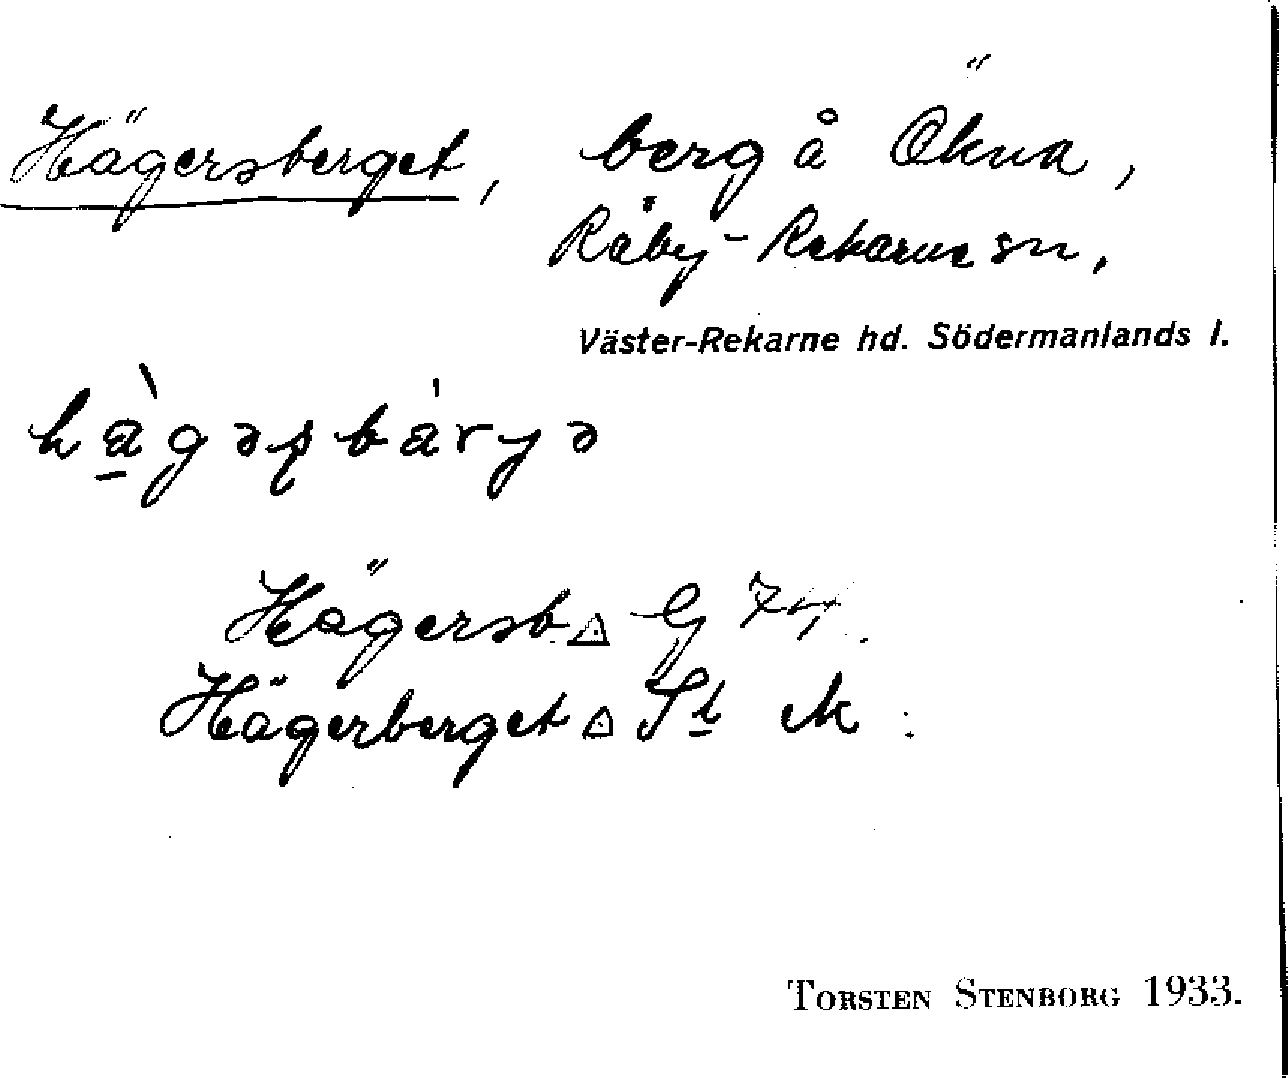 Hägersberget, berg å Ökna,
Räby-Rekarne sn.
Väster-Rekarne hd. Södermanlands l.
Hägersb. G 74.
Hägerberget St ek.
TORSTEN STENBORG 1933.